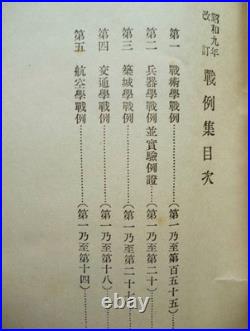 昭和九年改訂 戰例集目次
第一 戰術學戰例………(第一乃至第百五十五)
第二 兵器學戰例並實驗例證………(第一乃至第二十)
第三 築城學戰例………(第一乃至第二十七)
第四 交通學戰例………(第一乃至第十八)
第五 航空學戰例………(第一乃至第十四)